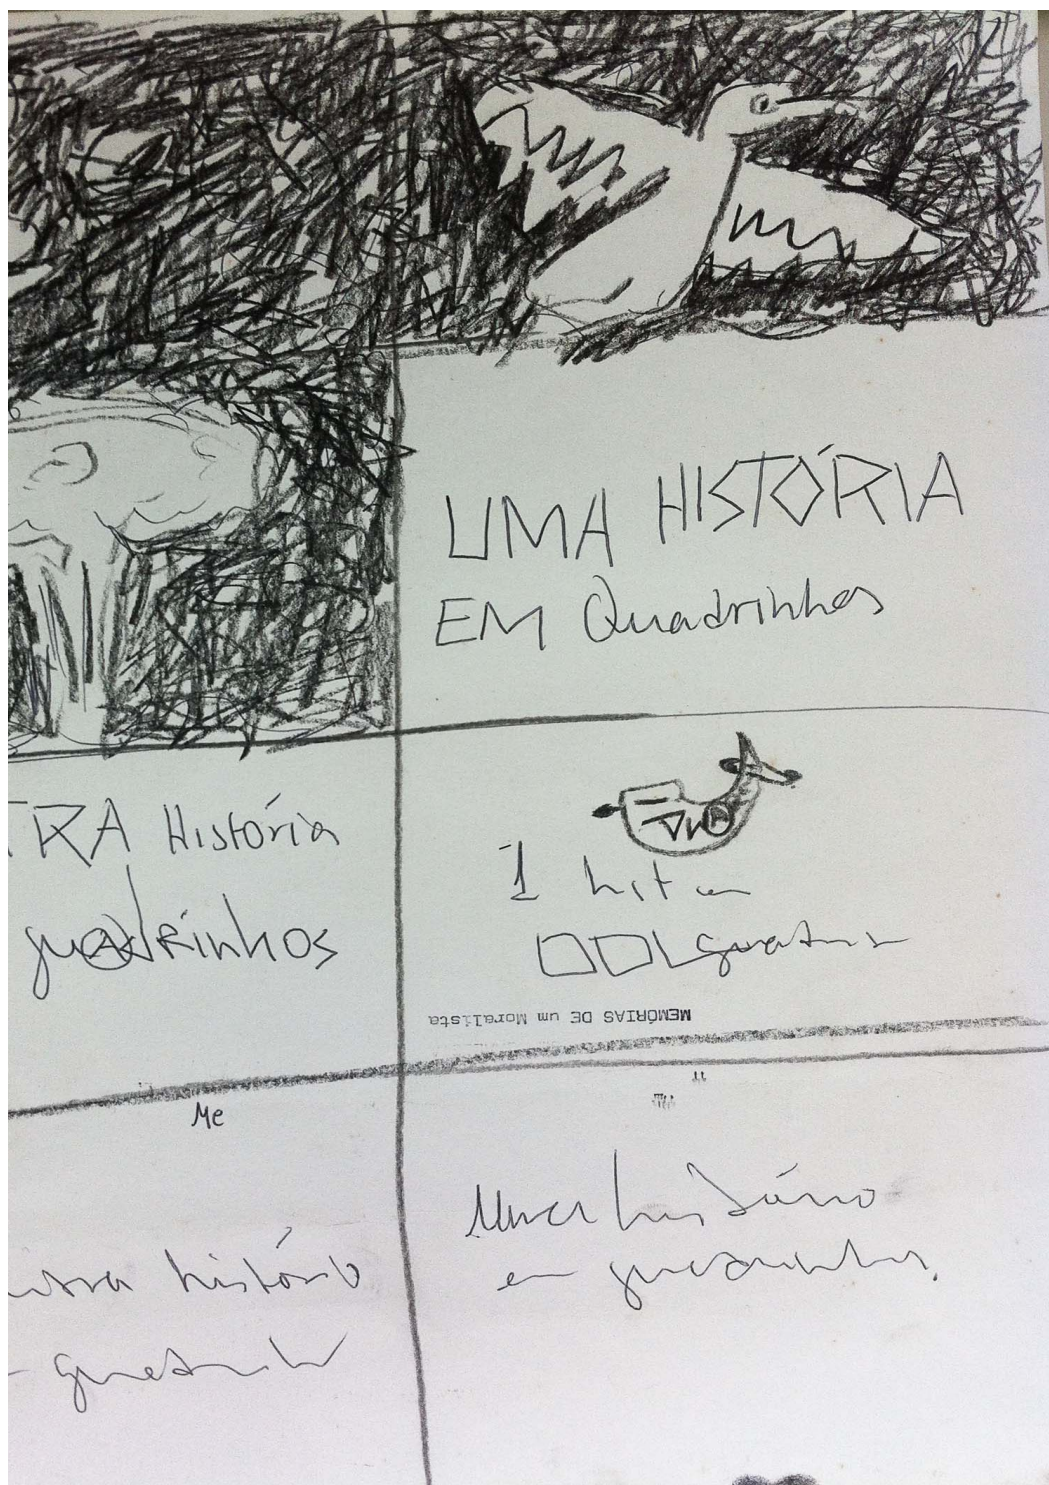 UMA HISTÓRIA
EM Quadrinhos
TRA História
quadrinhos
1 hist em
MEMÓRIAS DE um Moralista
Me
história
Uma história
em quadrinhos.